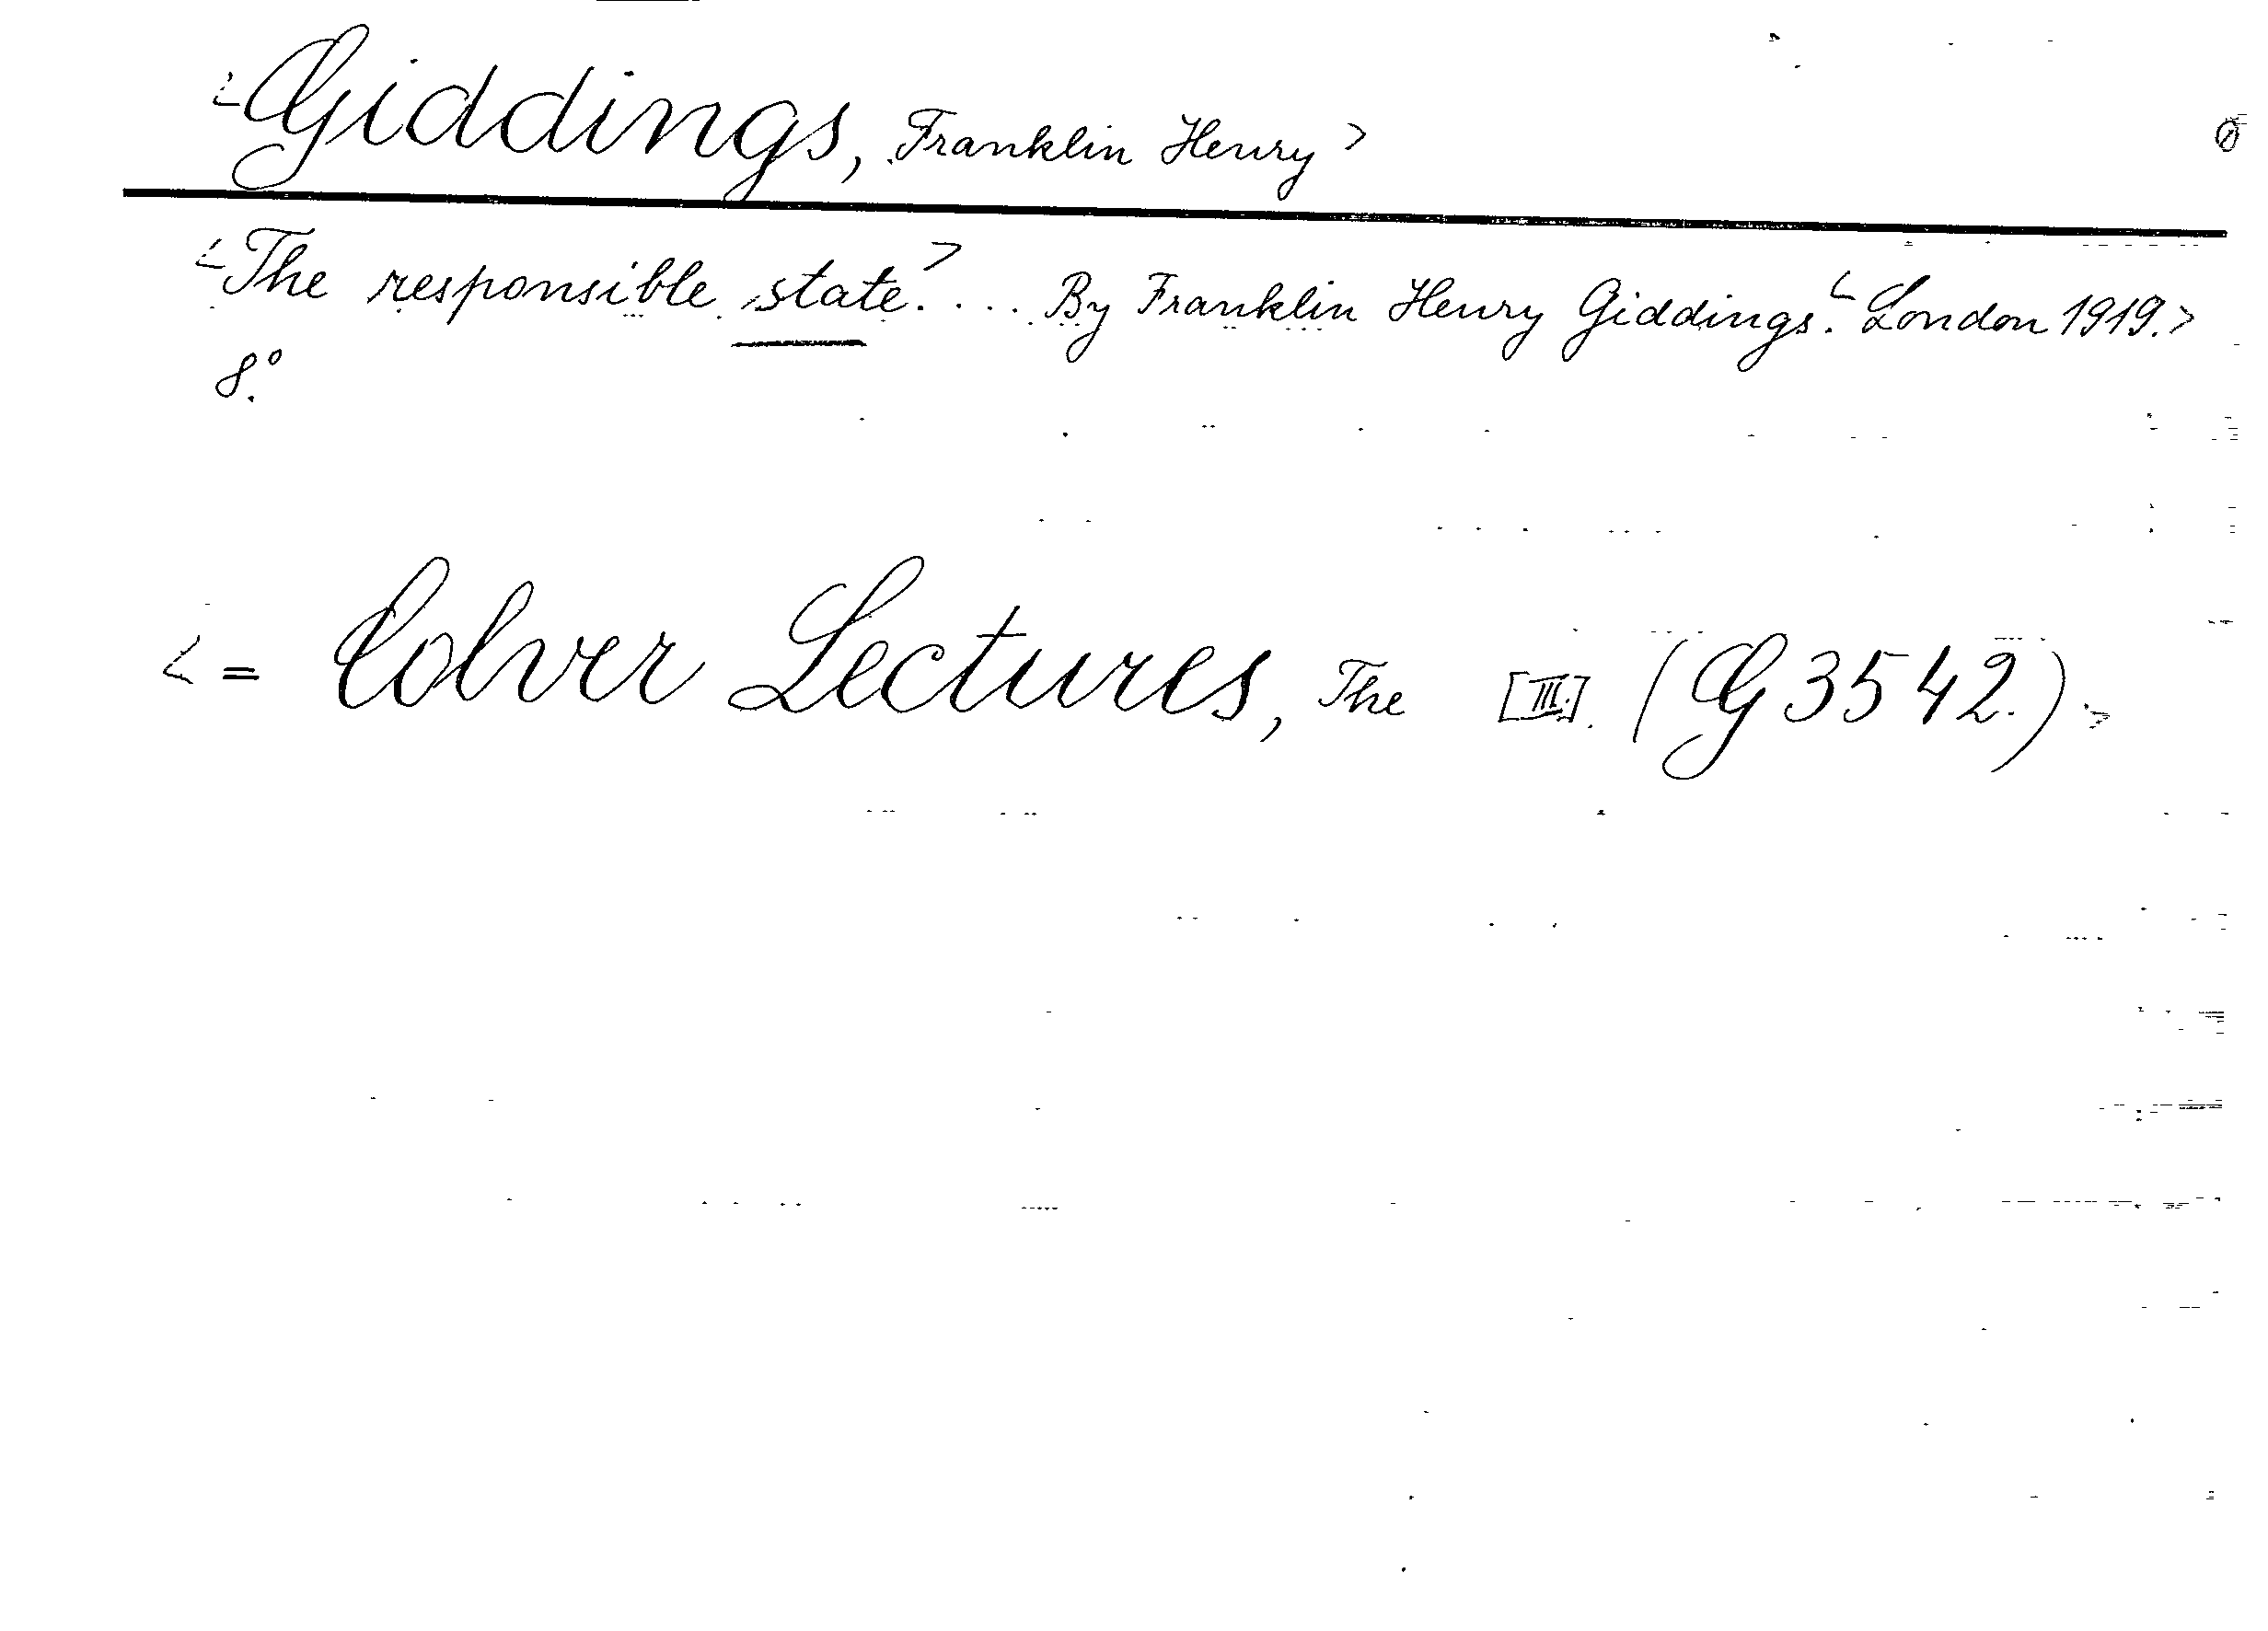 <Giddings, Franklin Henry>
<The responsible state.> ... By Franklin Henry Giddings. <London 1919.>
8°.
<= Colver Lectures, The [III.]. (G 3542.)>